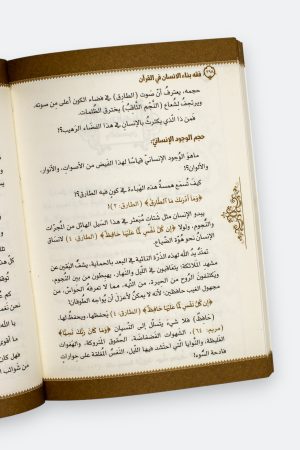 فقه بناء الإنسان في القرآن
حجمه، يعترفُ أنّ صوت (الطارق) في فضاء الكون أعلى مِن صوته،
ويرتجفُ لشُعاع (النَّجْم الثَّاقِبُ) باختِرق الظُّلمات.
فمَن ذا الَّذي يكترثُ بالإنسانِ في هذا الفضاء الرَّهيب؟!
حجم الوجود الإنسانيّ:
ماهوَ الوُجود الإنسانيّ قياسًا لهذا الفَيض من الأصوات، والأنوار،
والأكوان؟!
كيفَ تُسمع همسة هذه الهَباءة في كونٍ فيه الطارق؟!
﴿وَمَا أَدْرَاكَ مَا الطَّارِقُ﴾ (الطارق: ٢)!
يبدو الإنسان مثل شتات مُبعثر في هذا السَيل الهائل من المجرّات
والنُّجوم، ولولا ﴿إِن كُلُّ نَفْسٍ لَّمَّا عَلَيْهَا حَافِظٌ﴾ (الطارق: ٤) لانساق
الإنسانُ نحو هوّة الضياع!
تمتدُّ يدُ اللَّه لهذه الذرّة النائية في البعد بالحماية، يشفّ اليَقين عن
مشهد الملائكة، يتعاقبون في اللَّيل والنَّهار، يهبطون من بين النُّجوم،
ويكتنفون الرُّوح من الحيرة، من التِّيه، مما لا تعرفهُ الحواسّ، من
مجهول الغيب حافظين؛ لأنه لا يمكنُ لأعزلٍ أن يُواجه الطُوفان!
﴿إِن كُلُّ نَفْسٍ لَّمَّا عَلَيْهَا حَافِظٌ﴾ (الطارق: ٤) يَحفظها، ويحفظُ لها.
(حَافِظٌ) فلا شيء يتسلّل إلى النّسيان ﴿وَمَا كَانَ رَبُّكَ نَسِيًّا﴾
(مريم: ٦٤)، الشهوات الفضفاضة، الحقوق المتروكة، والهفوات
الغليظة، والنَّوايا الَّتي احتشد فيها اللَّيل، النفسُ المُغلقة على حوارات
فادحة السُّوء!